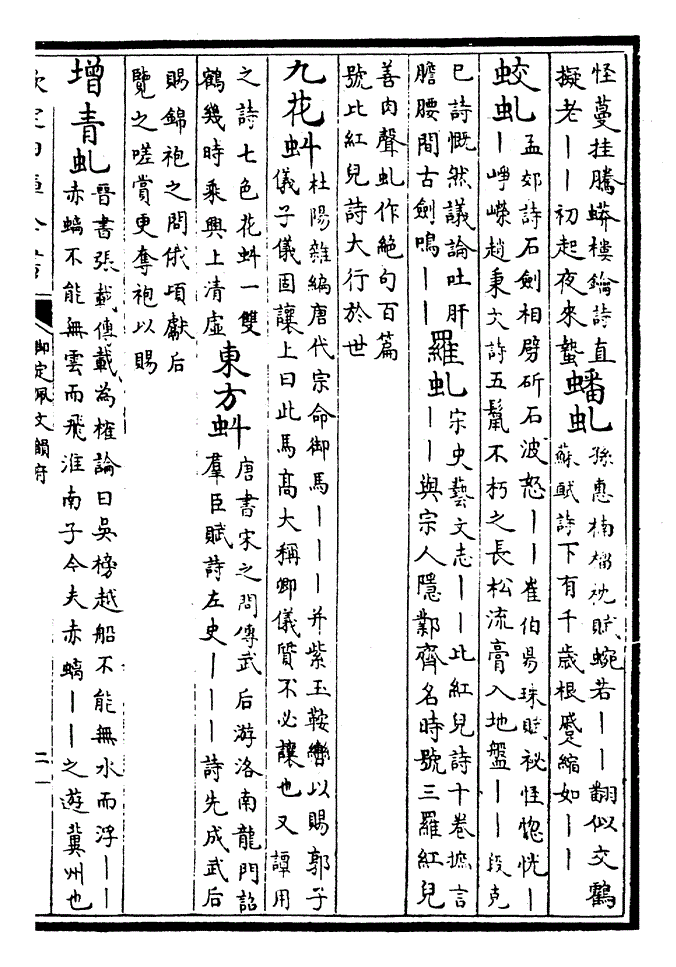 怪蔓挂騰蟒樓鑰詩直
擬老｜｜初起夜來蟄
蟠虬
孫惠楠榴枕賦蜿若｜｜翻似交鶴
蘇軾詩下有千歲根蹙縮如｜｜
蛟虬
孟郊詩石劍相劈斫石波怒｜｜崔伯易珠賦祕怪惚恍｜
｜崢嶸趙秉文詩五鬛不朽之長松流膏入地盤｜｜段克
已詩慨然議論吐肝
膽腰間古劍鳴｜｜
羅虬
宋史藝文志｜｜比紅兒詩十卷摭言
｜｜與宗人隱鄴齊名時號三羅紅兒
善肉聲虬作絕句百篇
號比紅兒詩大行於世
九花虯
杜陽雜編唐代宗命御馬｜｜｜并紫玉鞍轡以賜郭子
儀子儀固讓上曰此馬高大稱卿儀質不必讓也又譚用
之詩七色花虯一雙
鶴幾時乘興上清虛
東方虯
唐書宋之問傳武后游洛南龍門詔
羣臣賦詩左史｜｜｜詩先成武后
賜錦袍之問俄頃獻后
覽之嗟賞更奪袍以賜
增青虬
晉書張載傳載為榷論曰吳榜越船不能無水而浮｜｜
赤螭不能無雲而飛淮南子今夫赤螭｜｜之遊冀州也
欽定四庫全書
御定佩文韻府